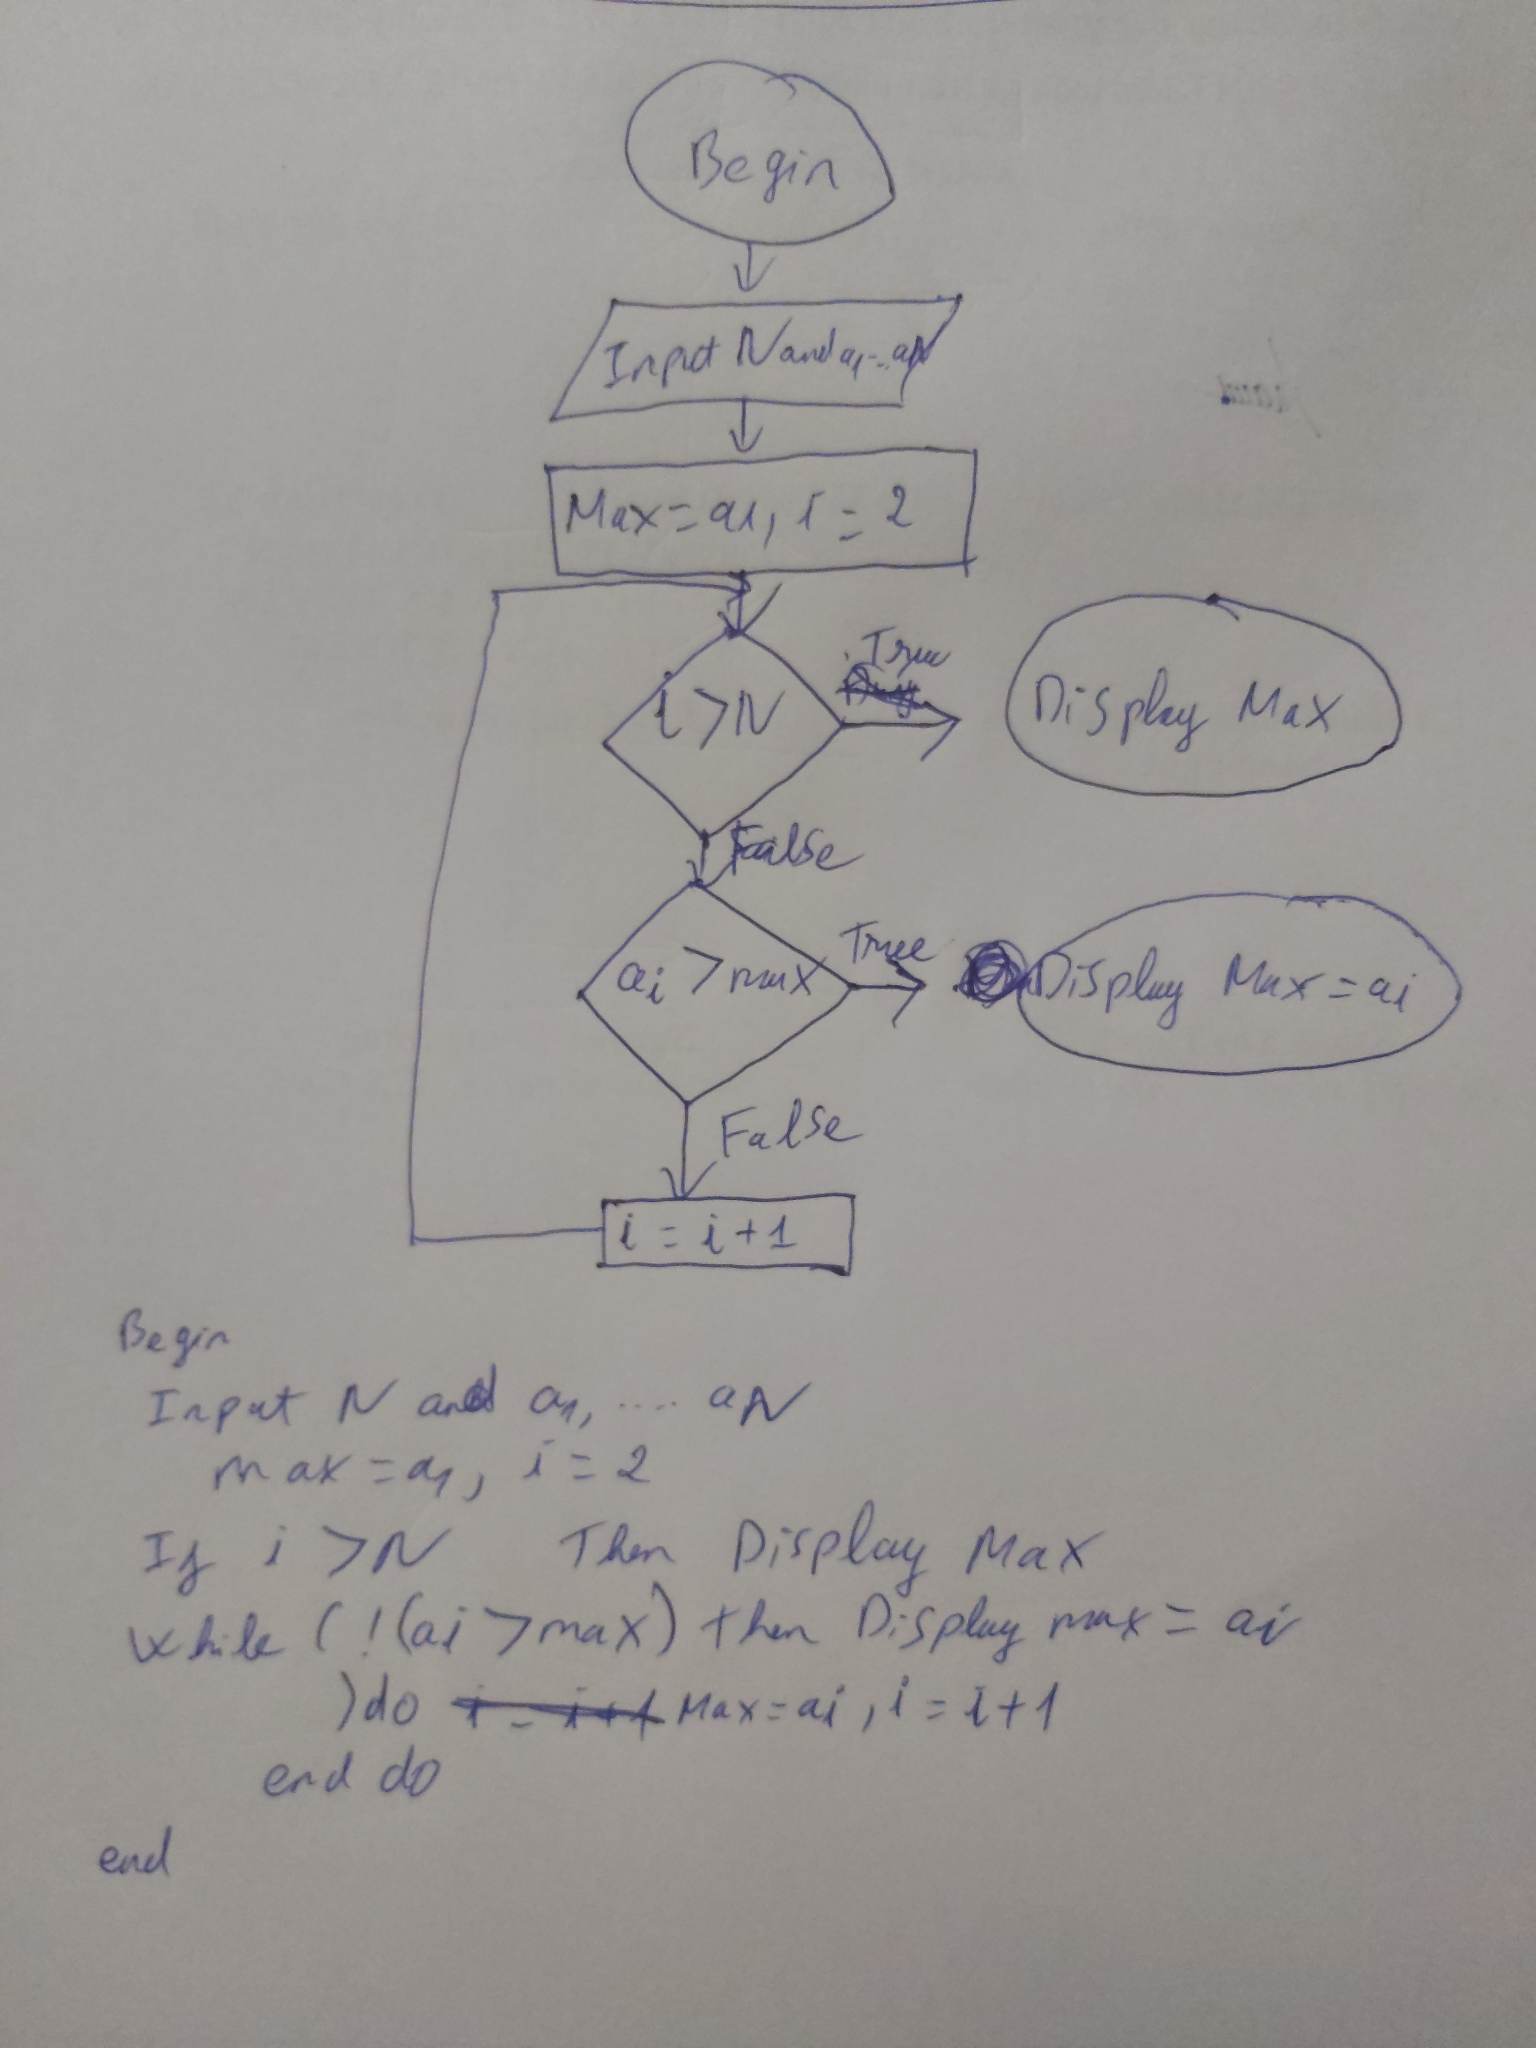 Begin
Input N and a1...aN
Max = a1, i = 2
i > N
True
Display Max
False
ai > max
True
Display Max = ai
False
i = i + 1
Begin
Input N and a1, ..... aN
max = a1, i = 2
If i > N Then Display Max
while (!(ai > max) then Display max = ai
) do Max = ai, i = i + 1
end do
end